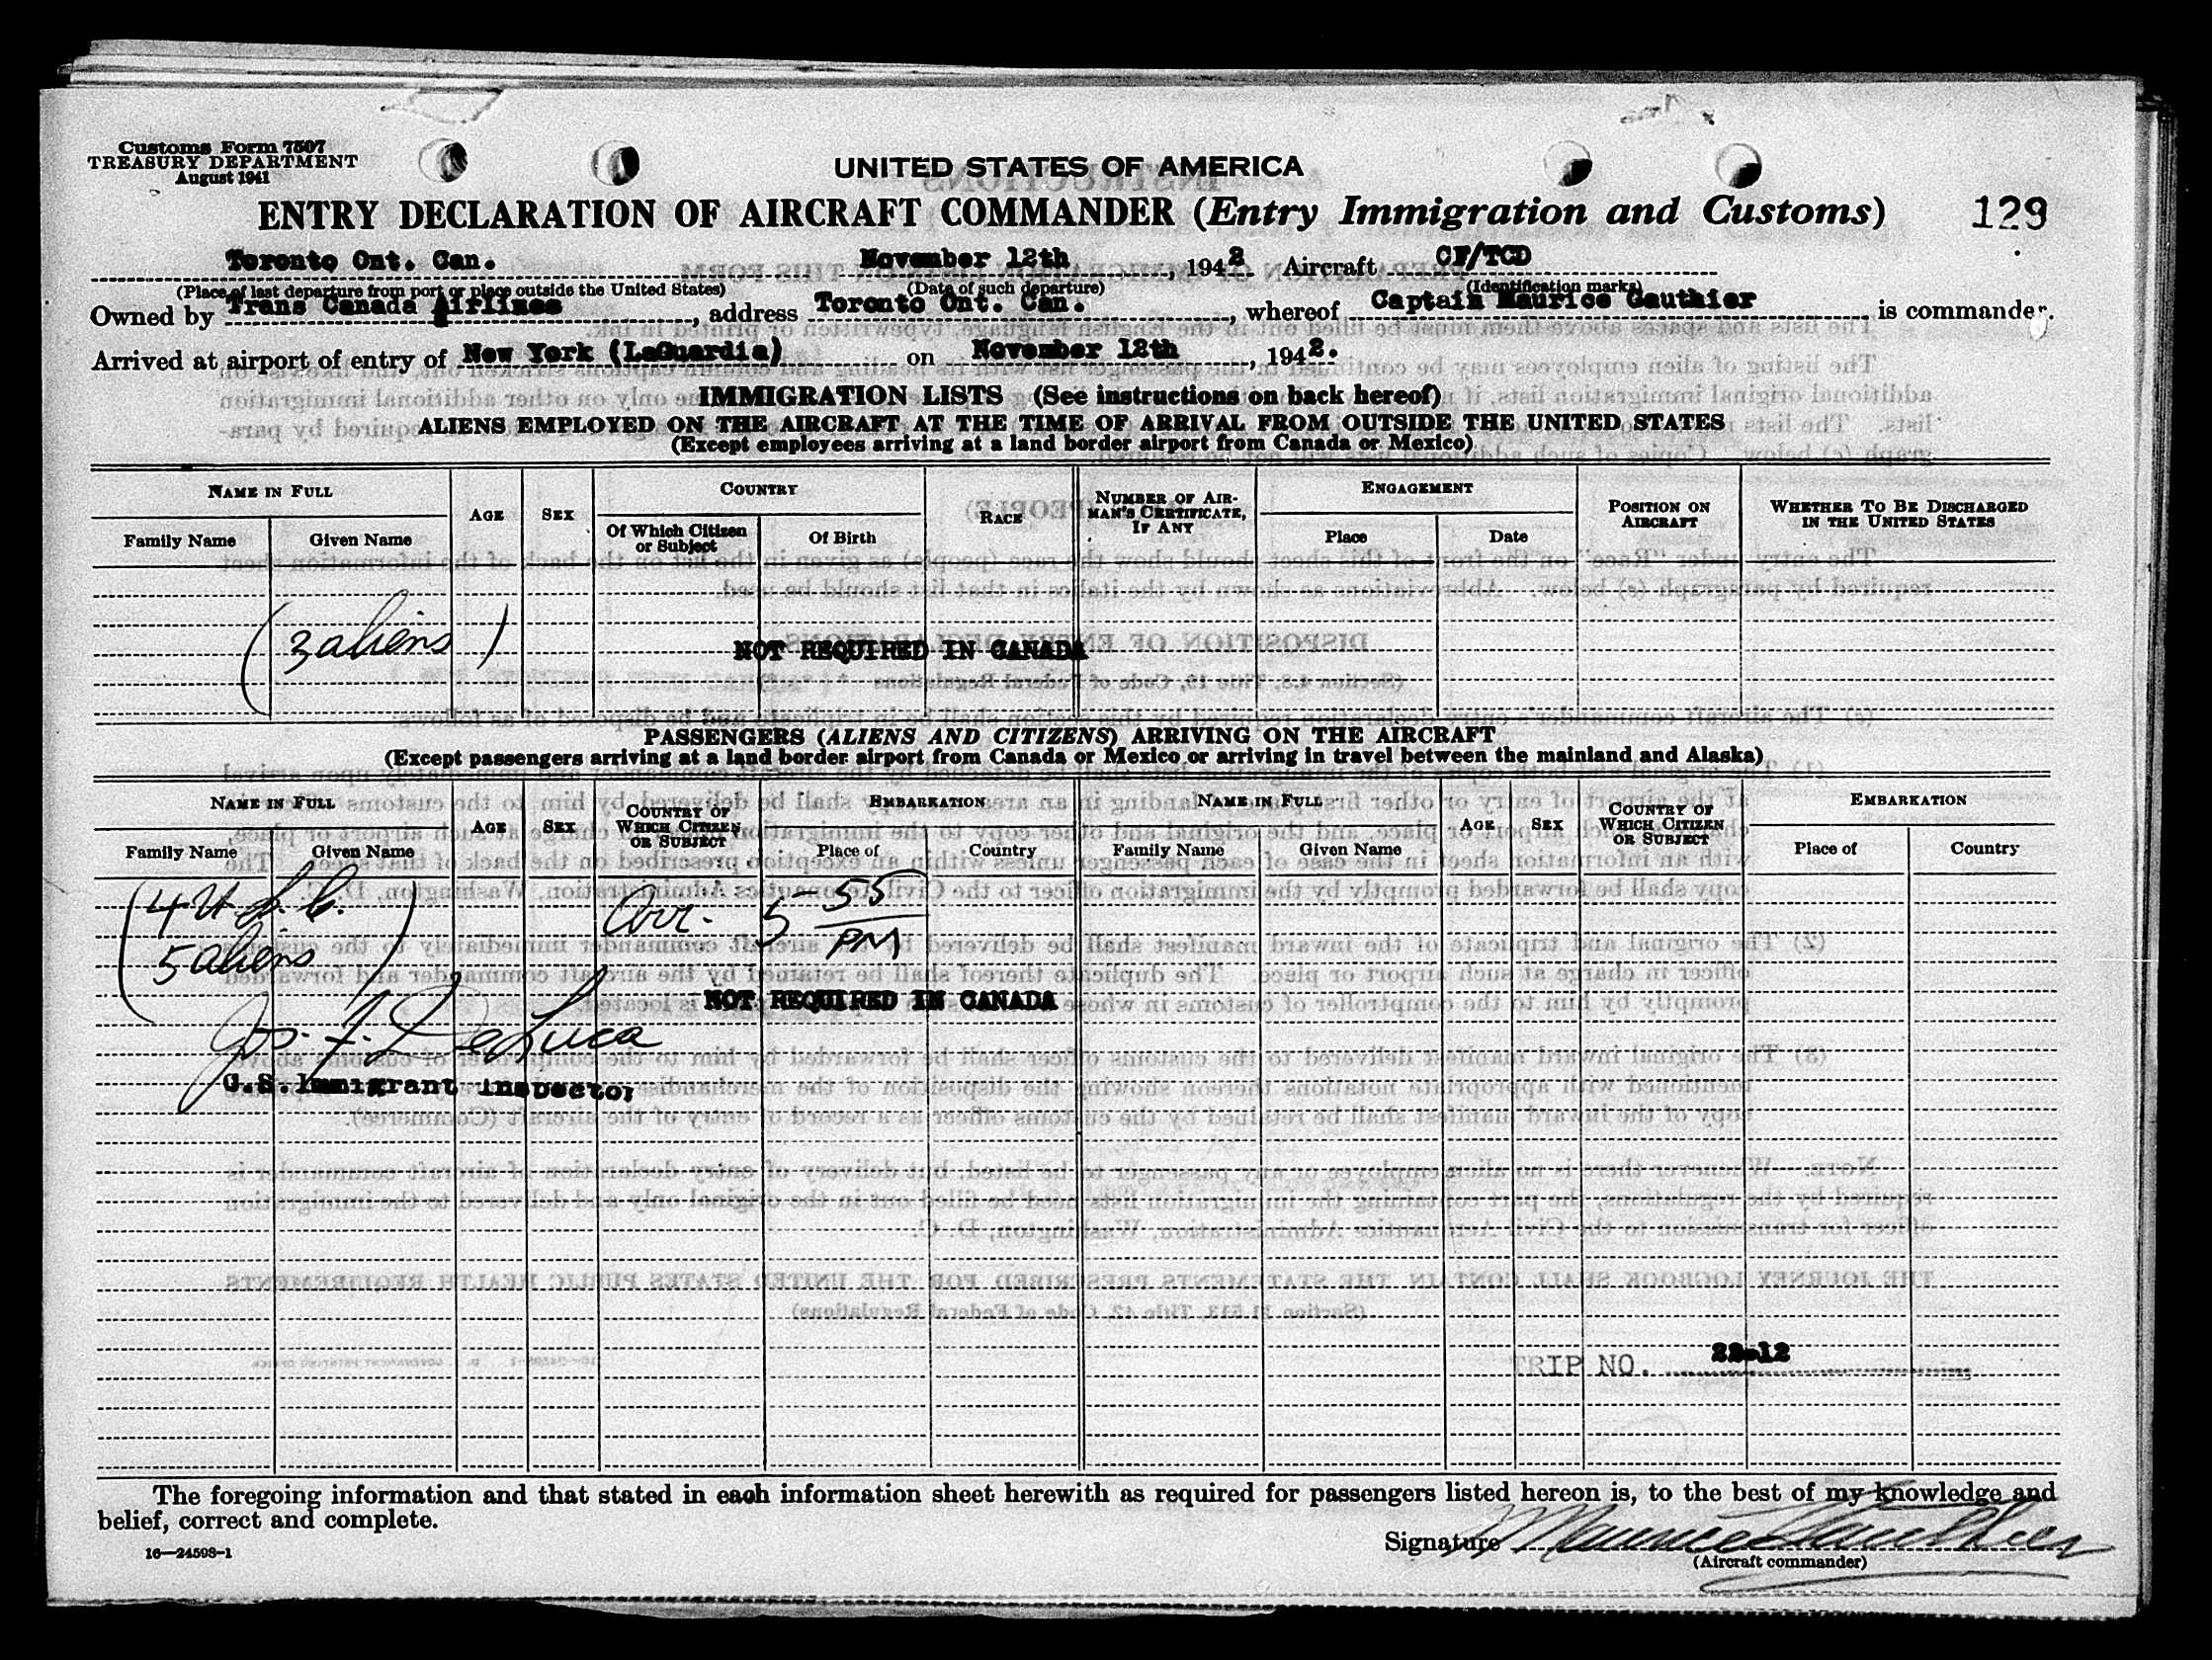 Customs Form 7507
TREASURY DEPARTMENT
August 1941
UNITED STATES OF AMERICA
ENTRY DECLARATION OF AIRCRAFT COMMANDER (Entry Immigration and Customs) 129
Toronto Ont. Can. November 12th, 1942 Aircraft CF/TCD
(Place of last departure from port or place outside the United States) (Date of such departure) (Identification marks)
Owned by Trans Canada Airlines, address Toronto Ont. Can., whereof Captain Maurice Gauthier is commander.
Arrived at airport of entry of New York (LaGuardia) on November 12th, 1942.
IMMIGRATION LISTS (See instructions on back hereof)
ALIENS EMPLOYED ON THE AIRCRAFT AT THE TIME OF ARRIVAL FROM OUTSIDE THE UNITED STATES
(Except employees arriving at a land border airport from Canada or Mexico)
NAME IN FULL AGE SEX COUNTRY RACE NUMBER OF AIRMAN'S CERTIFICATE, IF ANY ENGAGEMENT POSITION ON AIRCRAFT WHETHER TO BE DISCHARGED IN THE UNITED STATES
Family Name Given Name Of Which Citizen or Subject Of Birth Place Date
(3 aliens)
NOT REQUIRED IN CANADA
PASSENGERS (ALIENS AND CITIZENS) ARRIVING ON THE AIRCRAFT
(Except passengers arriving at a land border airport from Canada or Mexico or arriving in travel between the mainland and Alaska)
NAME IN FULL AGE SEX COUNTRY OF WHICH CITIZEN OR SUBJECT EMBARKATION NAME IN FULL AGE SEX COUNTRY OF WHICH CITIZEN OR SUBJECT EMBARKATION
Family Name Given Name Place of Country Family Name Given Name Place of Country
(4 U.S.C. Arr. 5-55 PM
5 aliens)
NOT REQUIRED IN CANADA
Jos. F. DeLuca
U.S. Immigrant Inspector
TRIP NO. 22-12
The foregoing information and that stated in each information sheet herewith as required for passengers listed hereon is, to the best of my knowledge and
belief, correct and complete.
Signature Maurice Gauthier
16—24593-1 (Aircraft commander)